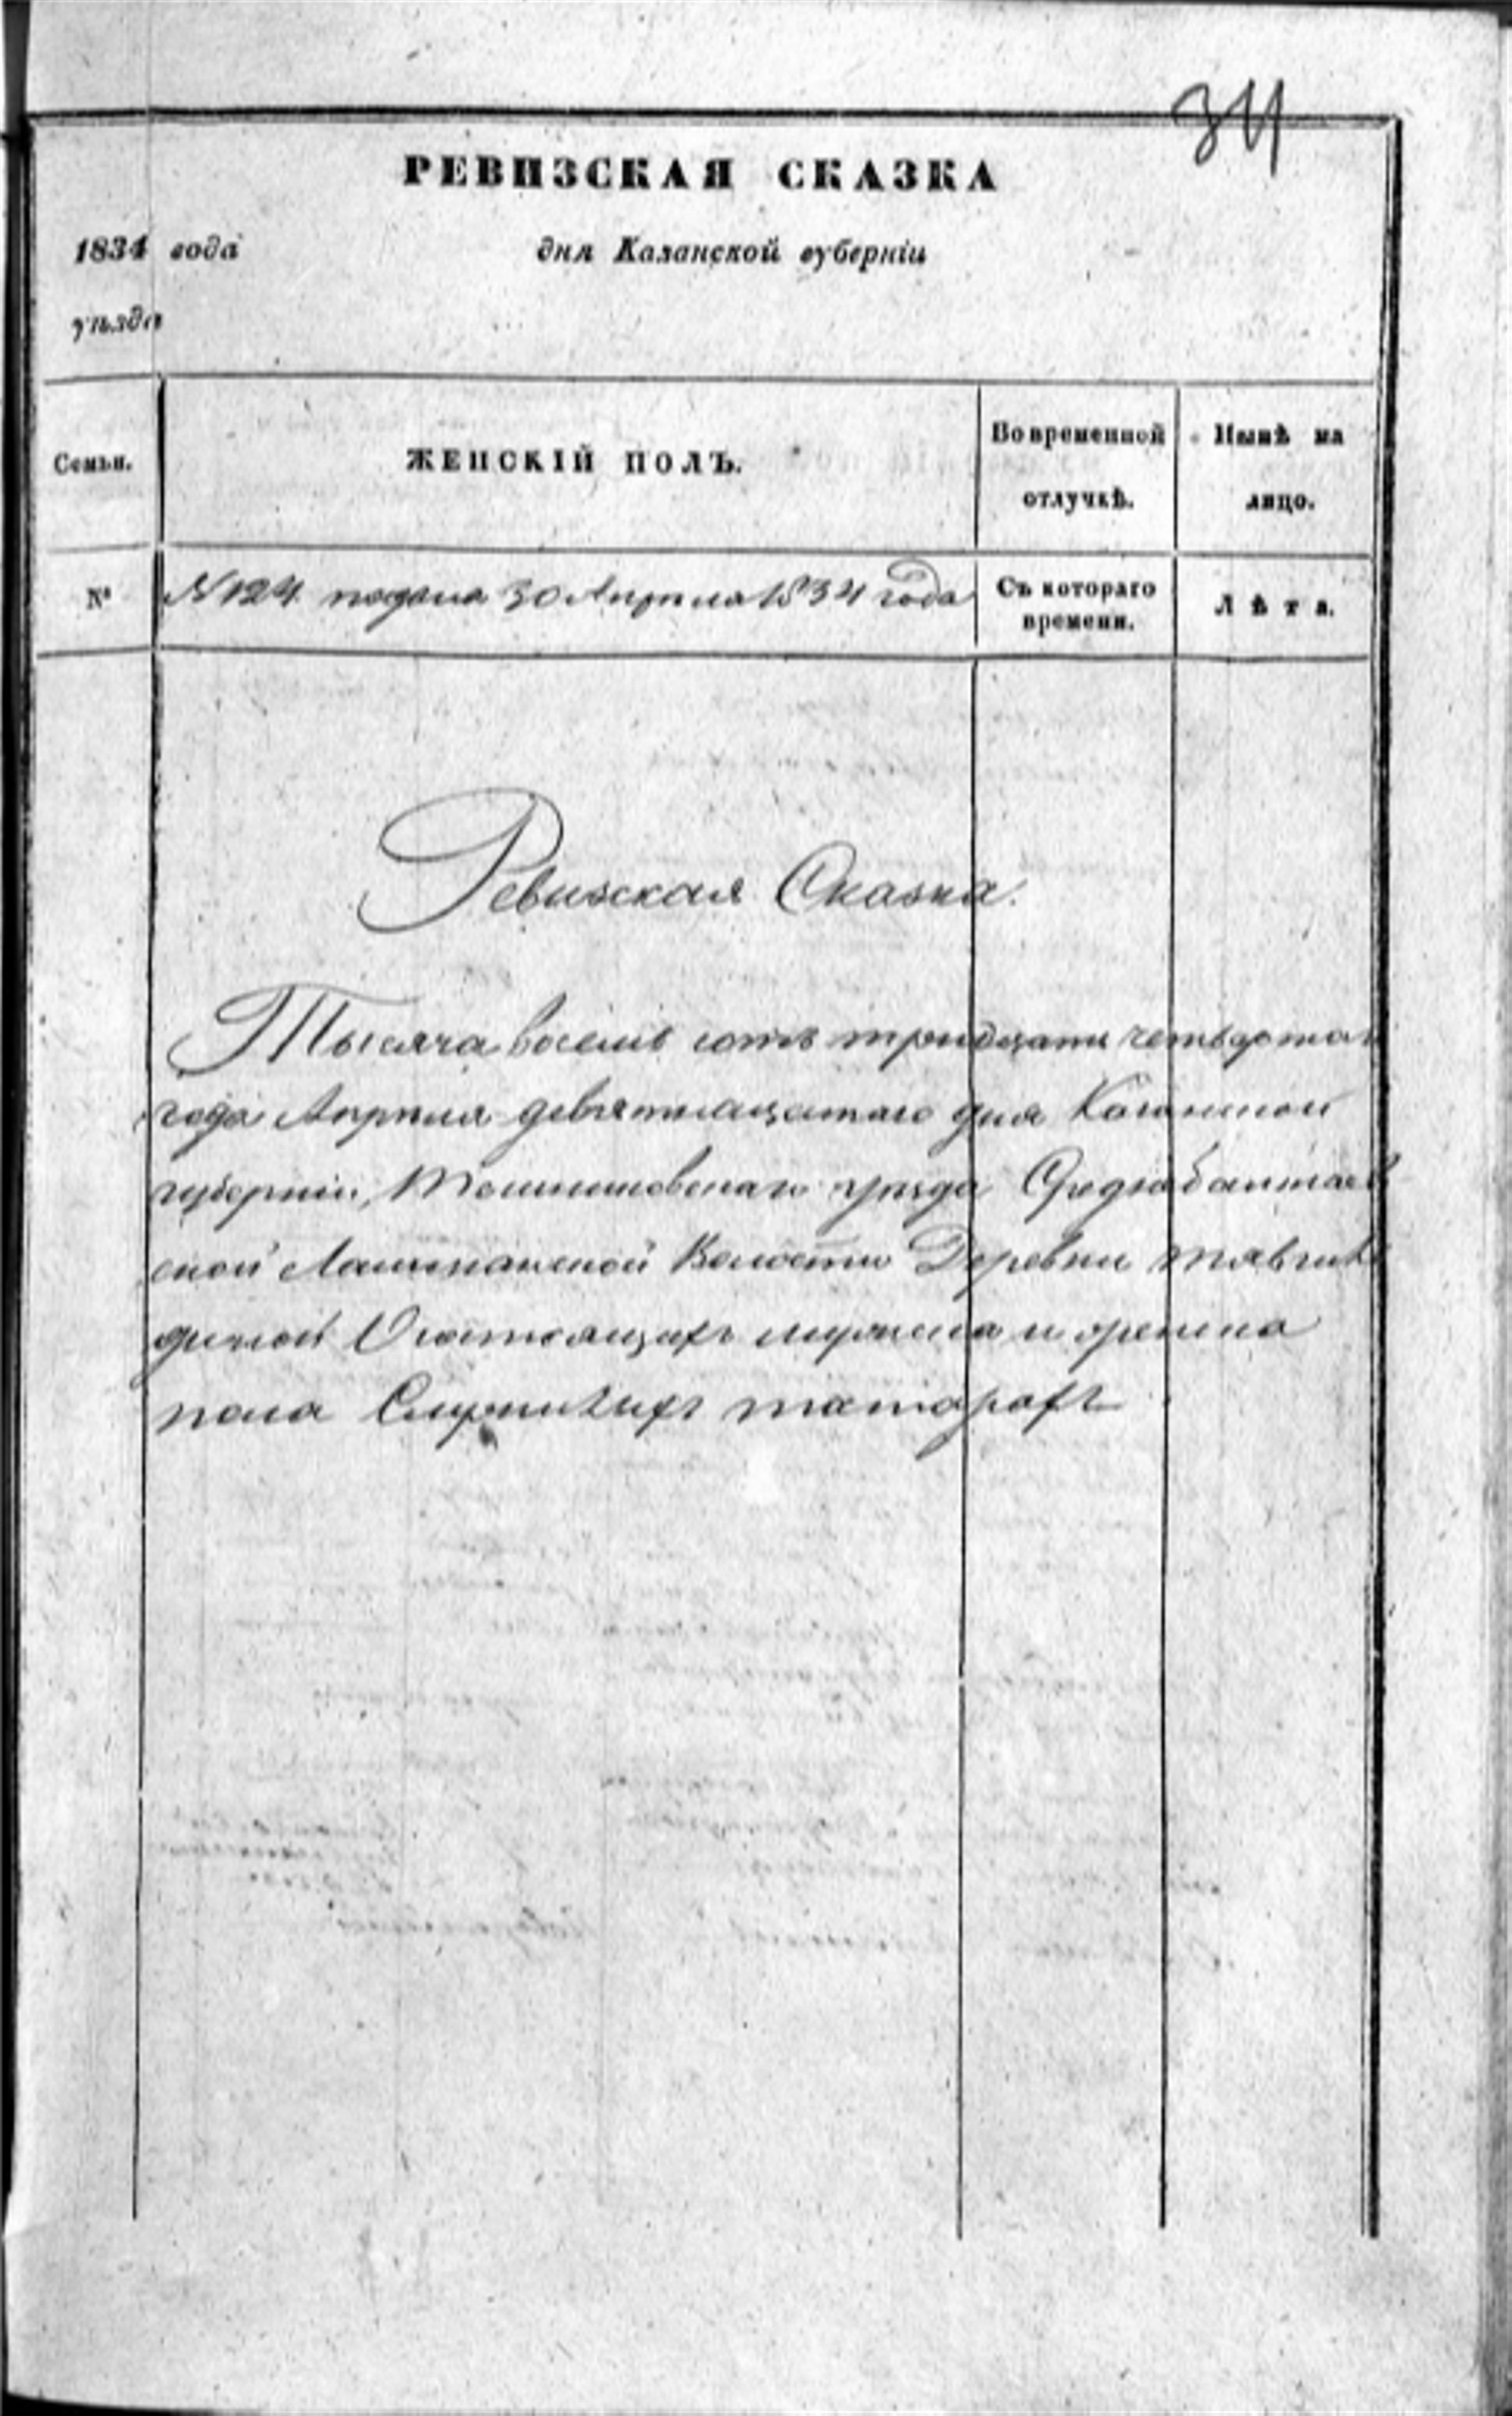 34
РЕВИЗСКАЯ СКАЗКА
1834 года дня Казанской губерніи
уѣзда
Семьи. ЖЕНСКІЙ ПОЛЪ. Во временной отлучкѣ. Нынѣ на лицо.
№ N 124 подана 30 Апреля 1834 года Съ котораго времени. Лѣта.
Ревизская Сказка.
Тысяча восемь сотъ тридцати четвертого
года Апреля девятнацатаго дня Казанской
губерніи, уезда
ской Лашманской Волости Деревни
Состоящихъ мужеска и женска
пола Служилыхъ татарахъ